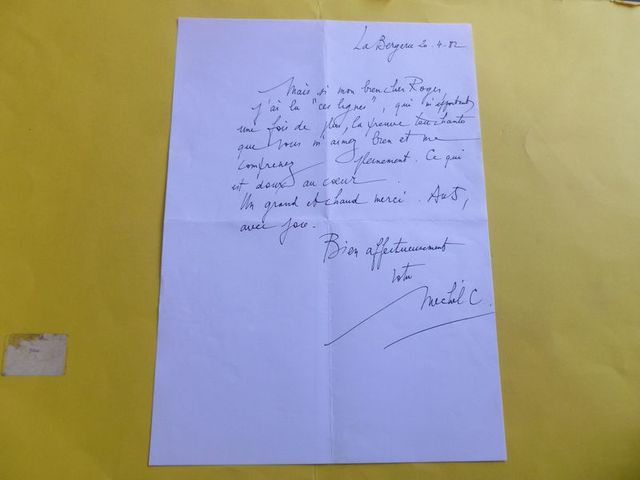 La Bergerie 20-4-82
Mais si mon bien cher Roger,
j'ai lu "ces lignes", qui m'apportent
une fois de plus, la preuve touchante
que vous m'aimez bien et me
comprenez pleinement. Ce qui
est doux au cœur.
Un grand et chaud merci. Au 5,
avec joie.
Bien affectueusement
votre
Michel C.